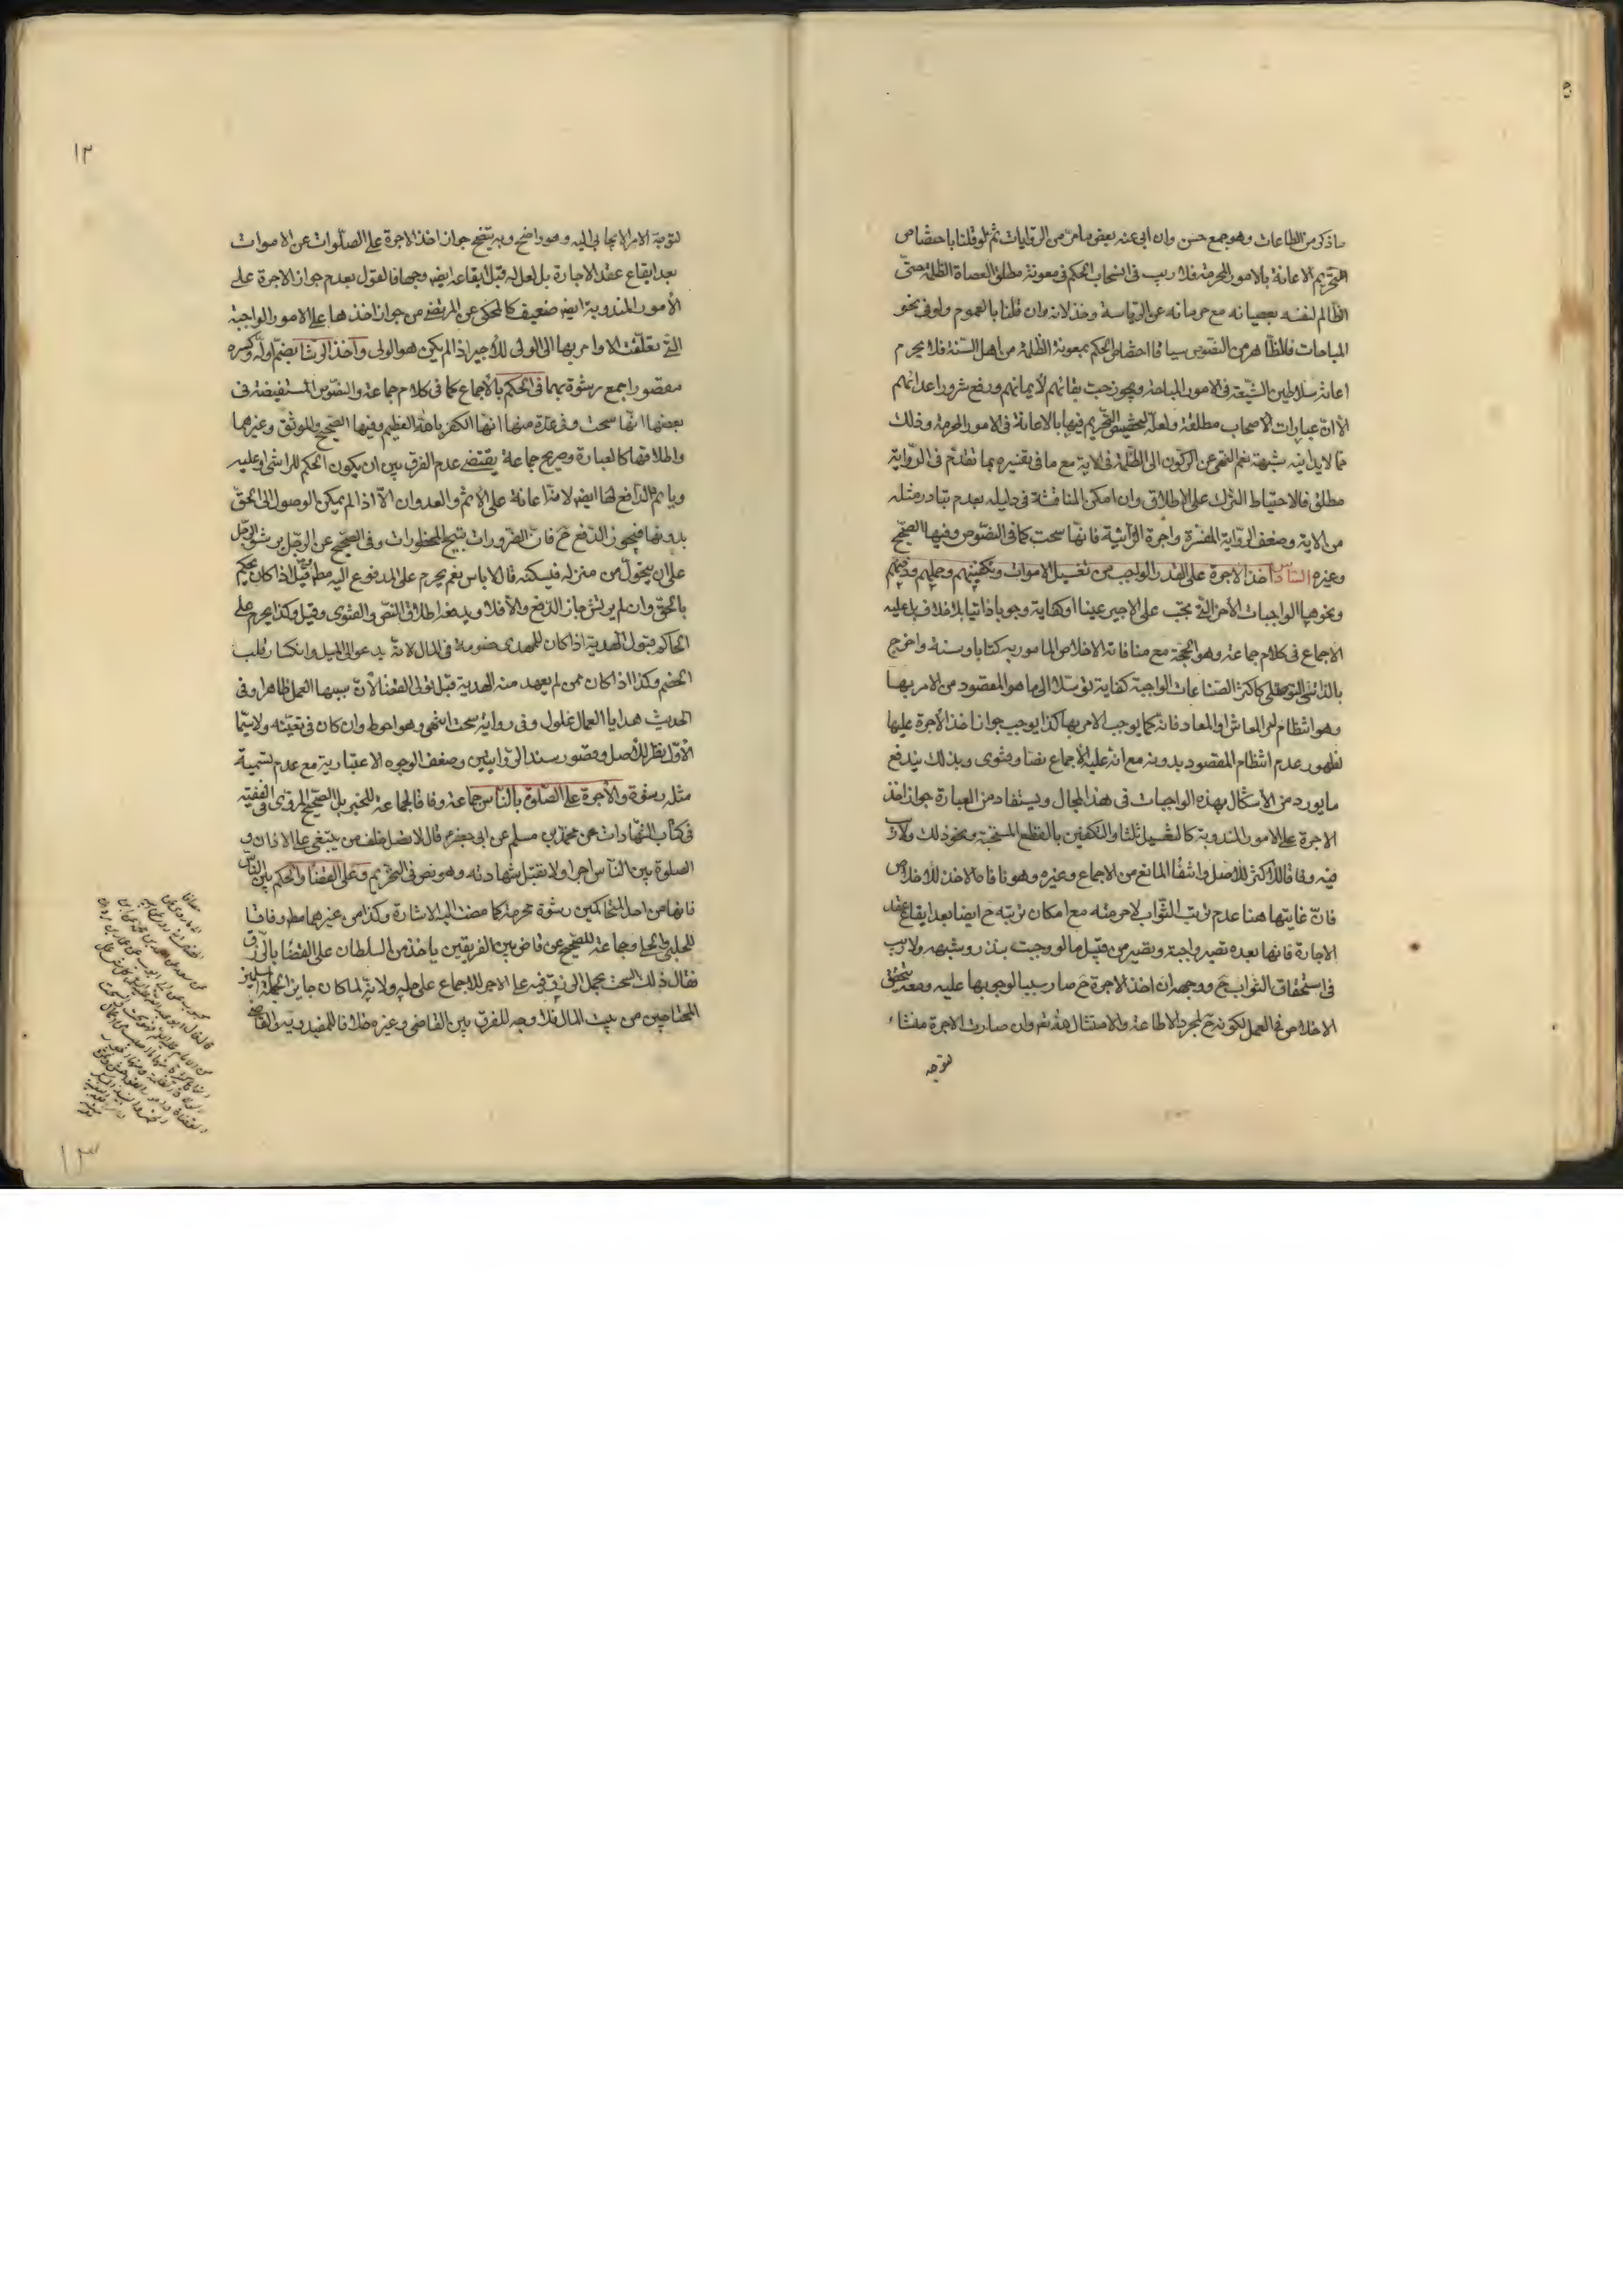 ماذكر من الطاعات وهو جمع حسن وان ابى عنه بعض ما مر من الروايات ثم لو قلنا باختصاص
التحريم الاعانة بالامور المحرمة فلا ريب فى انسحاب الحكم فى معونة مطلق العصاة الظلمة حتى
الظالم لنفسه بعصيانه مع حرمانه عن الرياسة وخذلانه وان قلنا بالعموم ولو فى نحو
المباحات فالظاهر من النصوص سياقا اختصاص الحكم بمعونة الظلمة من اهل السنة فلا يحرم
اعانة سلاطين الشيعة فى الامور المباحة ويجوز حب بقائهم لايمانهم ودفع شرور اعدائهم
الا ان عبارات الاصحاب مطلقة ولعله لتخصيص التحريم فيها بالاعانة فى الامور المحرمة وذلك
مما لا يدانيه شبهة نعم النهى عن الركون الى الظلمة فى الاية مع ما فى تفسيره مما تقدم فى الرواية
مطلق فالاحتياط الترك على الاطلاق وان امكن المناقشة فى دليله بعدم تبادر مثله
من الاية وضعف الرواية المفسرة واجرة الزانية فانها سحت كما فى النصوص وفيها الصحيح
وغيره السادس اخذ الاجرة على القدر الواجب من تغسيل الاموات وتكفينهم وحملهم ودفنهم
ونحوها الواجبات الأخر التى تجب على الاجير عينا او كفاية وجوبا ذاتيا بلا خلاف بل عليه
الاجماع فى كلام جماعة وهو الحجة مع منافاته الاخلاص المامور به كتابا وسنة واخرج
بالذاتى التوصلى كاكثر الصناعات الواجبة كفاية توسلا الى ما هو المقصود من الامر بها
وهو انتظام امر المعاش او المعاد فانه كما يوجب الامر بها كذا يوجب جواز اخذ الأجرة عليها
لظهور عدم انتظام المقصود بدونه مع انه عليه الاجماع نصا وفتوى وبذلك يندفع
ما يورد من الأشكال بهذه الواجبات فى هذا المجال ويستفاد من العبارة جواز اخذ
الاجرة على الامور المندوبة كالتغسيل ثلثا والتكفين بالقطع المستحبة ونحو ذلك ولا ريب
فيه وفاقا للاكثر للاصل وانتفاء المانع من الاجماع وغيره وهو منافاة الاخذ للاخلاص
فان غايتها هنا عدم ترتب الثواب لا حرمته مع امكان ترتبه ح ايضا بعد ايقاع عقد
الاجارة فانها بعده تصير واجبة وتصير من قبيل ما لو وجبت بنذر وشبهه ولا ريب
فى استحقاق الثواب ح ووجهه ان اخذ الاجرة ح صار سببا لوجوبها عليه ومعه يتحقق
الاخلاص فى العمل لكونه ح لمجرد الاطاعة والامتثال لله نعم وان صارت الاجرة منشاء
لتوجه
١٢
لتوجه الامر الايجابى اليه وهو واضح وبه يتضح جواز اخذ الاجرة على الصلوات عن الاموات
بعد ايقاع عقد الاجارة بل لعل له قبل ايقاعه ايضا وجها فالقول بعدم جواز الاجرة على
الأمور المندوبة ايضا ضعيف كالمحكى عن المرتضى من جواز اخذها على الامور الواجبة
التى تعلقت الاوامر بها الى الولى للأجير اذا لم يكن هو الولى واخذ الرشا بضم اوله وكسره
مقصورا جمع رشوة بهما فى الحكم بالأجماع كما فى كلام جماعة والنصوص المستفيضة فى
بعضها انها سحت وفى عدة منها انها الكفر بالله العظيم وفيها الصحيح والموثق وغيرهما
واطلاقها كالعبارة وصريح جماعة يقتضى عدم الفرق بين ان يكون الحكم للراشى او عليه
وياثم الدافع لها ايضا لانه اعانة على الأثم والعدوان الا اذا لم يمكن الوصول الى الحق
بدونها فيجوز الدفع ح فان الضرورات تبيح المحظورات وفى الصحيح عن الرجل يرشو الرجل
على ان يتحول من منزله فيسكنه قال لا باس نعم يحرم على المدفوع اليه مطلقا وقيل اذا كان يحكم
بالحق وان لم يرتش جاز الدفع والأفلا ويدفعه اطلاق النص والفتوى وقيل وكذا يحرم على
الحاكم قبول الهدية اذا كان للمهدى خصومة فى الحال لانه يدعو الى الميل وانكسار قلب
الخصم وكذا اذا كان ممن لم يعهد منه الهدية قبل تولى القضا لأن سببها العمل ظاهرا وفى
الحديث هدايا العمال غلول وفى رواية سحت انتهى وهو احوط وان كان فى تعينه ولا سيما
الأول نظر للأصل وقصور سند الروايتين وضعف الوجوه الاعتبارية مع عدم تسمية
مثله رشوة والأجرة على الصلوة بالناس جماعة وفاقا لجماعة للخبر بل الصحيح المروى فى الفقيه
فى كتاب الشهادات عن محمد بن مسلم عن ابى جعفر ع قال لا تصل خلف من يبتغى على الاذان و
الصلوة بين الناس اجرا ولا تقبل شهادته وهو نص فى التحريم وعلى القضاء والحكم بين الناس
فانها من احد المتحاكمين رشوة محرمة كما مضت اليه الاشارة وكذا من غيرهما مطلقا وفاقا
للحلبى والحلى وجماعة للصحيح عن قاض بين الفريقين ياخذ من السلطان على القضا بالرزق
فقال ذلك السحت بحمل الرزق فيه على الاجر للاجماع على حله ولانه لما كان جايزا لجملة المسلمين
المحتاجين من بيت المال فلا وجه للفرق بين القاضى وغيره خلافا للمفيد
١٣